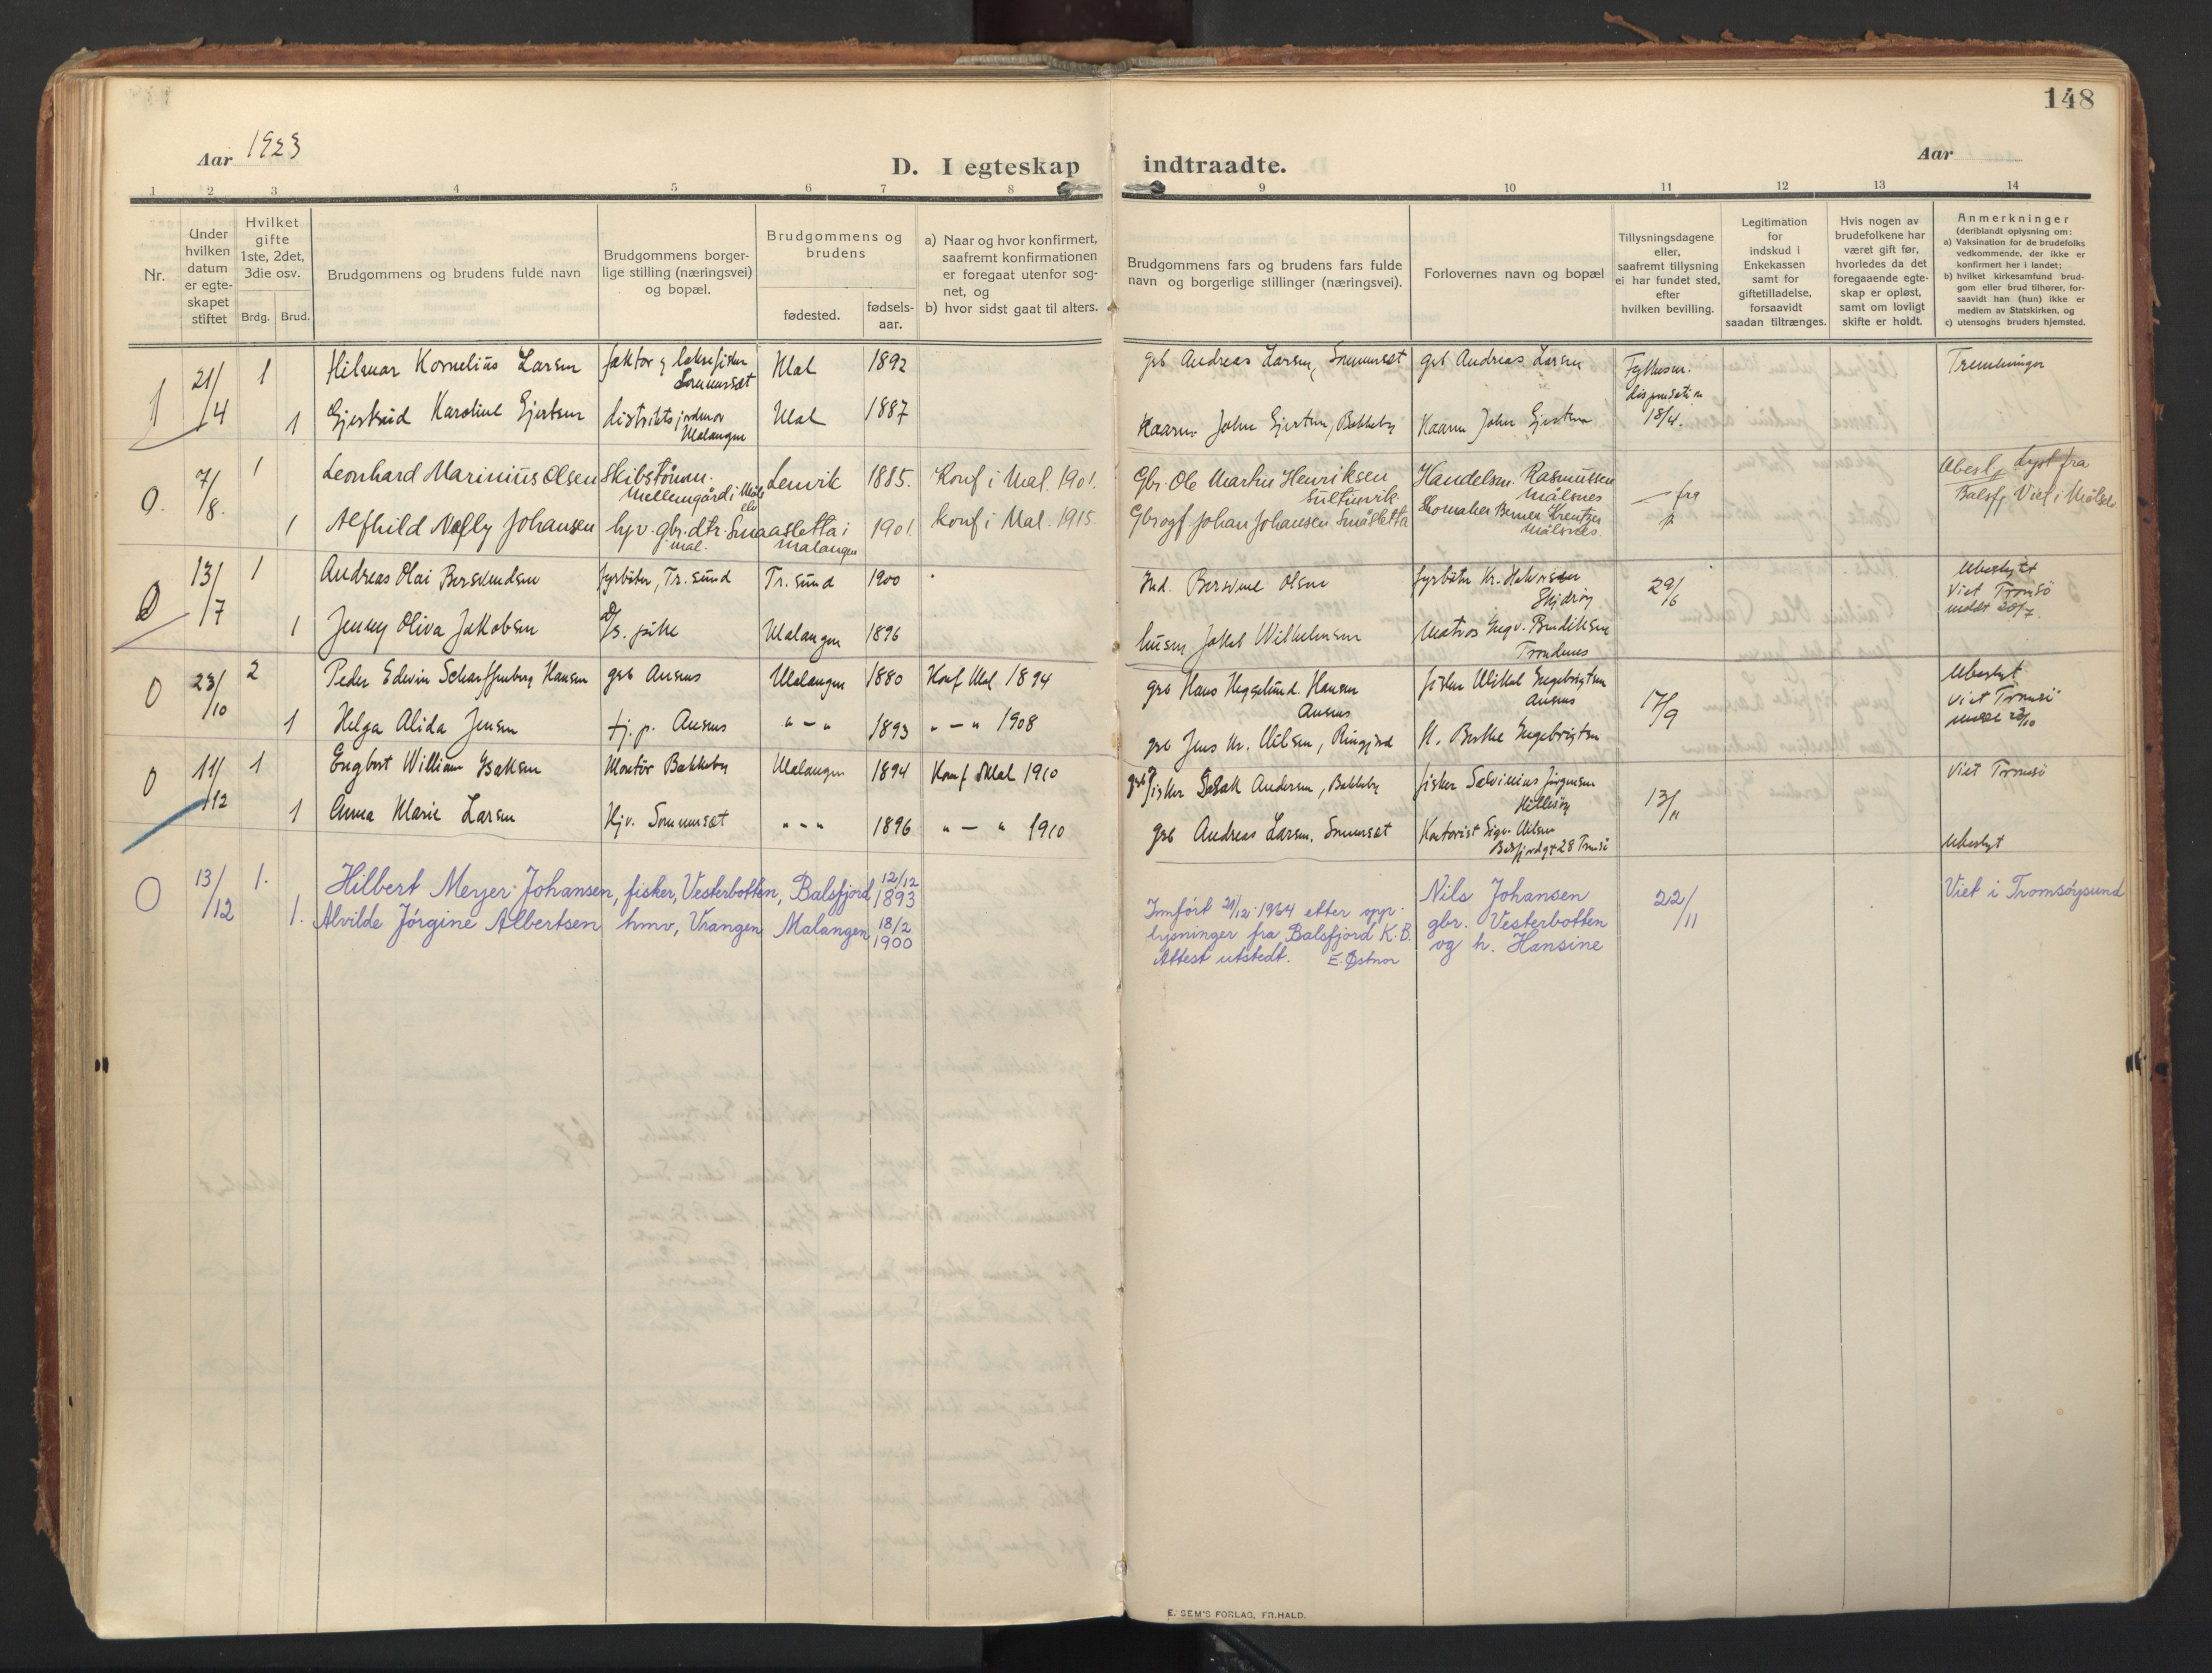 148
Aar 1923
D. I egteskap indtraadte.
Aar
1 2 3 4 5 6 7 8 9 10 11 12 13 14
Nr.
Under hvilken datum er egteskapet stiftet
Hvilket gifte 1ste, 2det, 3die osv.
Brdg. Brud.
Brudgommens og brudens fulde navn
Brudgommens borgerlige stilling (næringsvei) og bopæl.
Brudgommens og brudens
fødested.
fødselsaar.
a) Naar og hvor konfirmert, saafremt konfirmationen er foregaat utenfor sognet, og
b) hvor sidst gaat til alters.
Brudgommens fars og brudens fars fulde navn og borgerlige stillinger (næringsvei).
Forlovernes navn og bopæl
Tillysningsdagene eller, saafremt tillysning ei har fundet sted, efter hvilken bevilling.
Legitimation for indskud i Enkekassen samt for giftetilladelse, forsaavidt saadan tiltrænges.
Hvis nogen av brudefolkene har været gift før, hvorledes da det foregaaende egteskap er opløst, samt om lovligt skifte er holdt.
Anmerkninger (deriblandt oplysning om:
a) Vaksination for de brudefolks vedkommende, der ikke er konfirmert her i landet;
b) hvilket kirkesamfund brudgom eller brud tilhører, forsaavidt han (hun) ikke er medlem av Statskirken, og
c) utensogns bruders hjemsted.
1 21/4 1 Hilmar Kornelius Larsen faktor & laksefisker Sommerset Mal 1892 grb Andreas Larsen, Sommerset grb Andreas Larsen Fylkesm. dispensation 18/4.
1 Gjertrud Karoline Gjertsen distriktsjordmor Malangen Mal 1887 John Gjertsen, Bakkeby John Gjertsen
0. 7/8. 1 Leonhard Marinius Olsen Skibstømm. Mellemgård i Måls elv Lenvik 1885. Konf i Mal. 1901. Gbr. Ole Martin Henriksen Handelsm. Rasmussen Målsnes fra Balsfj. Viet i Målselv
1 Alfhild Nelly Johansen hjv. gbr. dtr. Smaasletta i mal. Malangen 1901. Konf i Mal. 1915. Gbr og f Johan Johansen Småsletta Skomaker Berner Kreutzer Målsnes.
0 13/7 1 Andreas Olai Bersvendsen fyrbøter, Tr. sund Tr. sund 1900 Ind. Olsen fyrbøter Kr. 29/6 Ubeslegtet Viet Tromsö
1 Jenny Oliva Jakobsen Malangen 1896 Jakob Wilhelmsen Matros Ingv. Trondenes
0 23/10 2 Peder Edvin Scharffenberg Hansen grb Ansnes Malangen 1880 Konf Mal 1894 grb Hans Heggelund Hansen Ansnes fisker Mikal Engebrigtsen Ansnes 17/9 Ubeslegt Viet Tromsö
1 Helga Alida Jensen tj. p. Ansnes " — " 1893 " — " 1908 grb Jens Kr. Nilsen, H. Berthe Engebrigtsen
0 11/12 1 Engbert William Isaksen Montör Bakkeby Malangen 1894 Konf Mal 1910 fisker Isak Andersen, Bakkeby fisker Jörgensen Hillesöy 13/11 Viet Tromsö
1 Anna Marie Larsen Hjv. Sommerset " " " 1896 " — " 1910 grb Andreas Larsen, Sommerset Kontorist Sigv. Nilsen Ubeslegt
0 13/12 1. Hilbert Meyer Johansen, fisker, Vesterbotten, Balsfjord 12/12 1893 Innført 21/12-1964 etter opplysninger fra Balsfjord K.B. Attest utstedt. E. Østmor Nils Johansen gbr. Vesterbotten og h. Hansine 22/11 Viet i Tromsøysund
1. Alvilde Jörgine Albertsen hmv, Vrangen Malangen 18/2 1900
E. SEM'S FORLAG, FR.HALD.